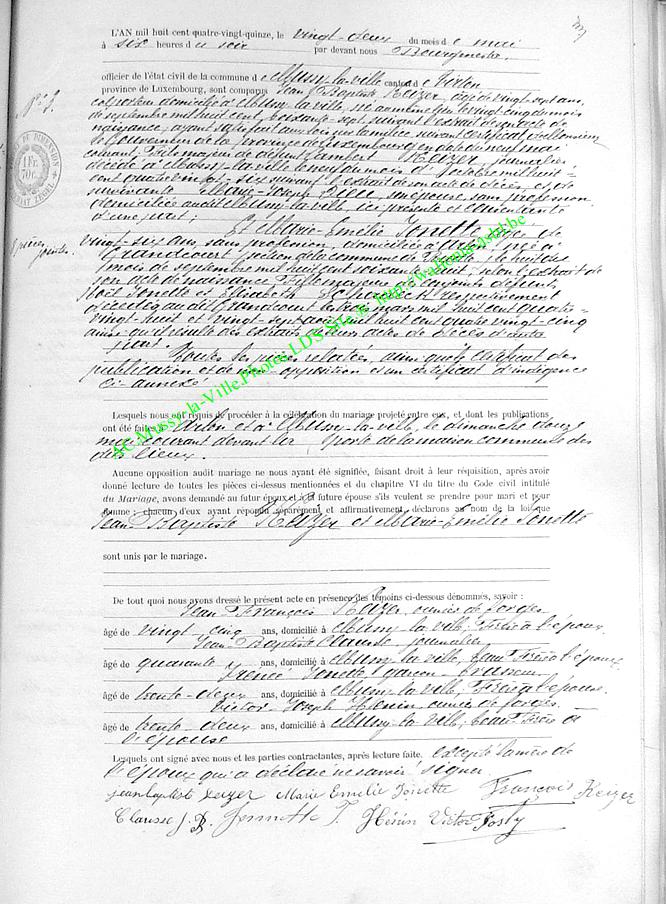 N° 8.
L'AN mil huit cent quatre-vingt-quinze, le vingt-deux du mois de mai
à six heures du soir par devant nous Bourgmestre
officier de l'état civil de la commune de Mussy-la-ville canton de Virton
province de Luxembourg, sont comparus Jean Baptiste Kayzer, âgé de vingt-sept ans,
domicilié à Mussy-la-ville, né au même lieu le vingt-cinq du mois
de septembre mil huit cent soixante-sept suivant l'extrait de son acte de
naissance, ayant satisfait aux lois sur la milice suivant certificat de Monsieur
le Gouverneur de la province de Luxembourg en date du neuf mai
courant, fils majeur de défunt Lambert Kayzer, journalier
décédé à Mussy-la-ville le neuf du mois d'octobre mil huit-
cent quatre-vingt-six suivant l'extrait de son acte de décès, et de
survivante Marie-Joseph son épouse, sans profession
domiciliée audit Mussy-la-ville, ici présente et consentante
d'une part;
Et Marie-Emélie Jonette, âgée de
8 pièces jointes.
vingt-six ans, sans profession, domiciliée à Arlon, née à
Grandcourt section de la commune de le huit du
mois de septembre mil huit cent soixante-huit, selon l'extrait de
son acte de naissance, fille majeure de conjoints défunts
Jonette et Elisabeth respectivement
décédés au dit Grandcourt le trois mars mil huit cent quatre-
vingt-huit et vingt-sept août mil huit cent quatre vingt-cinq
ainsi qu'il résulte des extraits de leurs actes de décès d'autre
part.
Toutes les pièces relatées, ainsi que le certificat des
publications et de non-opposition et un certificat d'indigence
ci-annexé
Lesquels nous ont requis de procéder à la célébration du mariage projeté entre eux, et dont les publications
ont été faites à Arlon et à Mussy-la-ville, le dimanche douze
mai courant devant la porte de la maison commune des
dits lieux.
Aucune opposition audit mariage ne nous ayant été signifiée, faisant droit à leur réquisition, après avoir
donné lecture de toutes les pièces ci-dessus mentionnées et du chapitre VI du titre du Code civil intitulé
du Mariage, avons demandé au futur époux et à la future épouse s'ils veulent se prendre pour mari et pour
femme : chacun d'eux ayant répondu séparément et affirmativement, déclarons au nom de la loi que
Jean-Baptiste Kayzer et Marie-Emélie Jonette
sont unis par le mariage.
De tout quoi nous avons dressé le présent acte en présence des témoins ci-dessous dénommés, savoir :
Jean François Kayzer, ouvrier de forges
âgé de vingt-cinq ans, domicilié à Mussy-la-ville, frère à l'époux
Jean-Baptiste Clausse, journalier
âgé de quarante ans, domicilié à Mussy-la-ville, beau frère à l'époux
Jonette, garçon-brasseur
âgé de trente-deux ans, domicilié à Mussy-la-ville, frère à l'épouse
Victor Joseph Hénin, ouvrier de forges
âgé de trente-deux ans, domicilié à Mussy-la-ville, beau frère à
l'épouse
Lesquels ont signé avec nous et les parties contractantes, après lecture faite, excepté la mère de
l'époux qui a déclaré ne savoir signer.
jean baptist keyzer Marie Emelie Jonette François Keyzer
Clausse J.B. Jonnette J. Hénin Victor Fosty
Ac-Mussy-la-Ville.Photos LDS Site http://wallonia-asbl.be